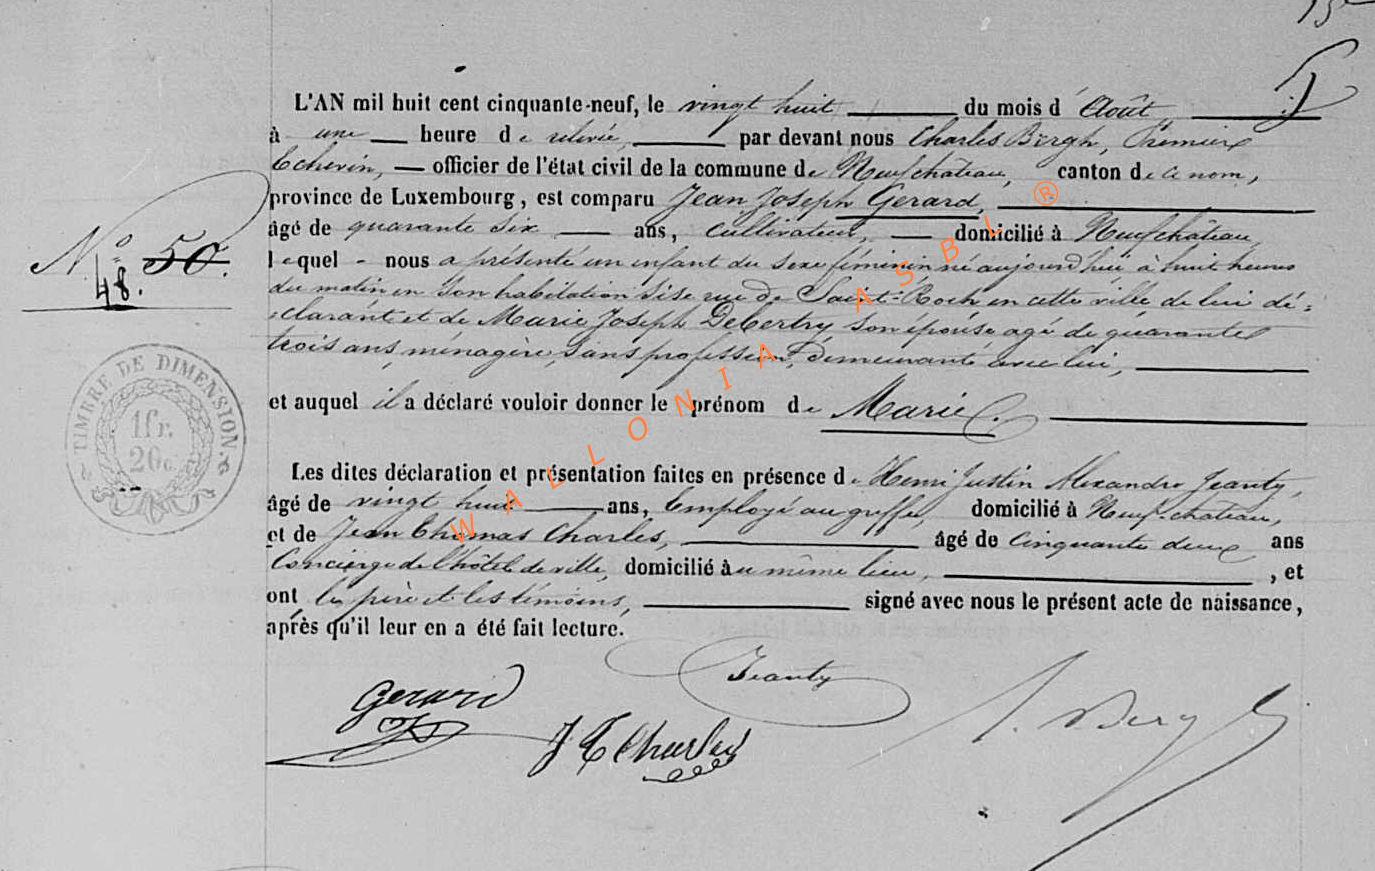 L'AN mil huit cent cinquante-neuf, le vingt huit du mois d'Août,
à une heure de relevée, par devant nous Charles Bergh, Premier
Echevin, officier de l'état civil de la commune de Neufchâteau, canton de ce nom,
province de Luxembourg, est comparu Jean Joseph Gerard,
âgé de quarante six ans, Cultivateur, domicilié à Neufchâteau,
N° 50.
48.
lequel nous a présenté un enfant du sexe féminin né aujourd'hui à huit heures
du matin en son habitation sise rue de Saint-Roch en cette ville de lui dé-
clarant et de Marie Joseph Debertry son épouse agé de quarante
trois ans, ménagère, sans profession, demeurante avec lui,
et auquel il a déclaré vouloir donner le prénom de Marie.
TIMBRE DE DIMENSION.
1fr.
20c.
Les dites déclaration et présentation faites en présence de Henri Justin Alexandre Jeanty,
âgé de vingt huit ans, Employé au greffe, domicilié à Neufchateau,
et de Jean Thomas Charles, âgé de Cinquante deux ans
Concierge de l'hôtel de ville, domicilié au même lieu, , et
ont le père et les témoins, signé avec nous le présent acte de naissance,
après qu'il leur en a été fait lecture.
Jeanty
Gerard
J T Charles
WALLONIA ASBL ®